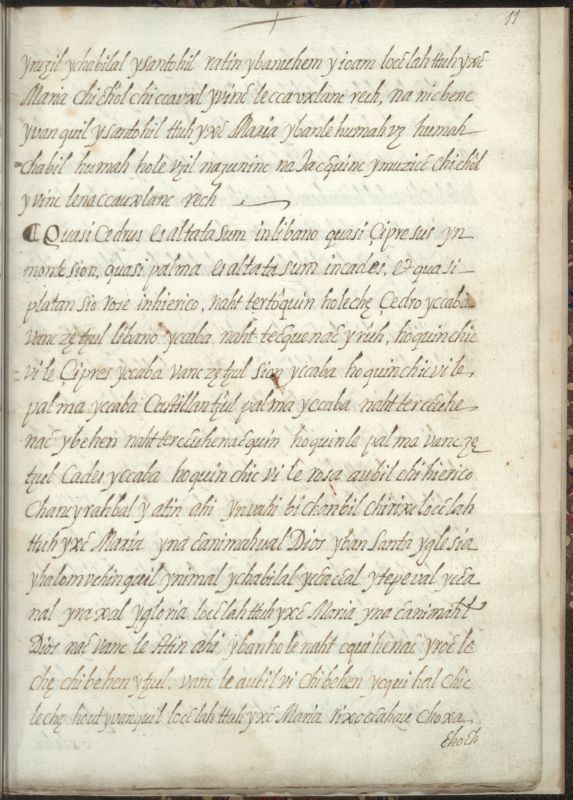 11
yruzil ychabilal ysantohil ratin ybanuhem y ioam locclah ttuh yxē
Maria chi chōl chi ccauxl yvinc le ccavxlanc rech, na nicbenc
yvanquil ysantohil ttuh yxē Maria ybanle husmah vz humah
chabil humah hole vzil nazuninc na Jacquinc ymuzicē chi chōl
y vinc lenaccauxlanc rech
Quasi Cedrus es altata sum inlibano quasi Çipresus yn
monte sion, quasi palma es altata sum incades, & quasi
platansio rose inhierico, naht tertóquin holechę Çedro yccaba
vanc zętzul libano yccaba naht tecquenac yrich, hoquinchic
vi le Çipres yccaba vanc zętzul sion yccaba hoquinchic vi le
palma yccaba Castillantzul palma yccaba naht terccuhe
nac ybehen naht terccuhenac quin hoquinle palma vanc zę
tzul Cades yccaba hoquin chic vi le rosa aubil chi hierico
Chancyrahbal y atin ahi ynvahi bichanbil chirixi locclah
ttuh yxē Maria yna canimahual Dios yban santa yglesia
yhalomvchinquil ynimal ychabilal yccaccal ytepeval ycca
nal yraxal ygloria locclah ttuh yxē Maria yna canimaht
Dios nac vanc le Atin ahi ybanholenaht cquihenac yroc le
chę chi behen ytzul, vanc le aubil vi chi behen ycqui hal chic
lechę hout yvanquil locclah ttuh yxē Maria rixocc ahau choxa
choch